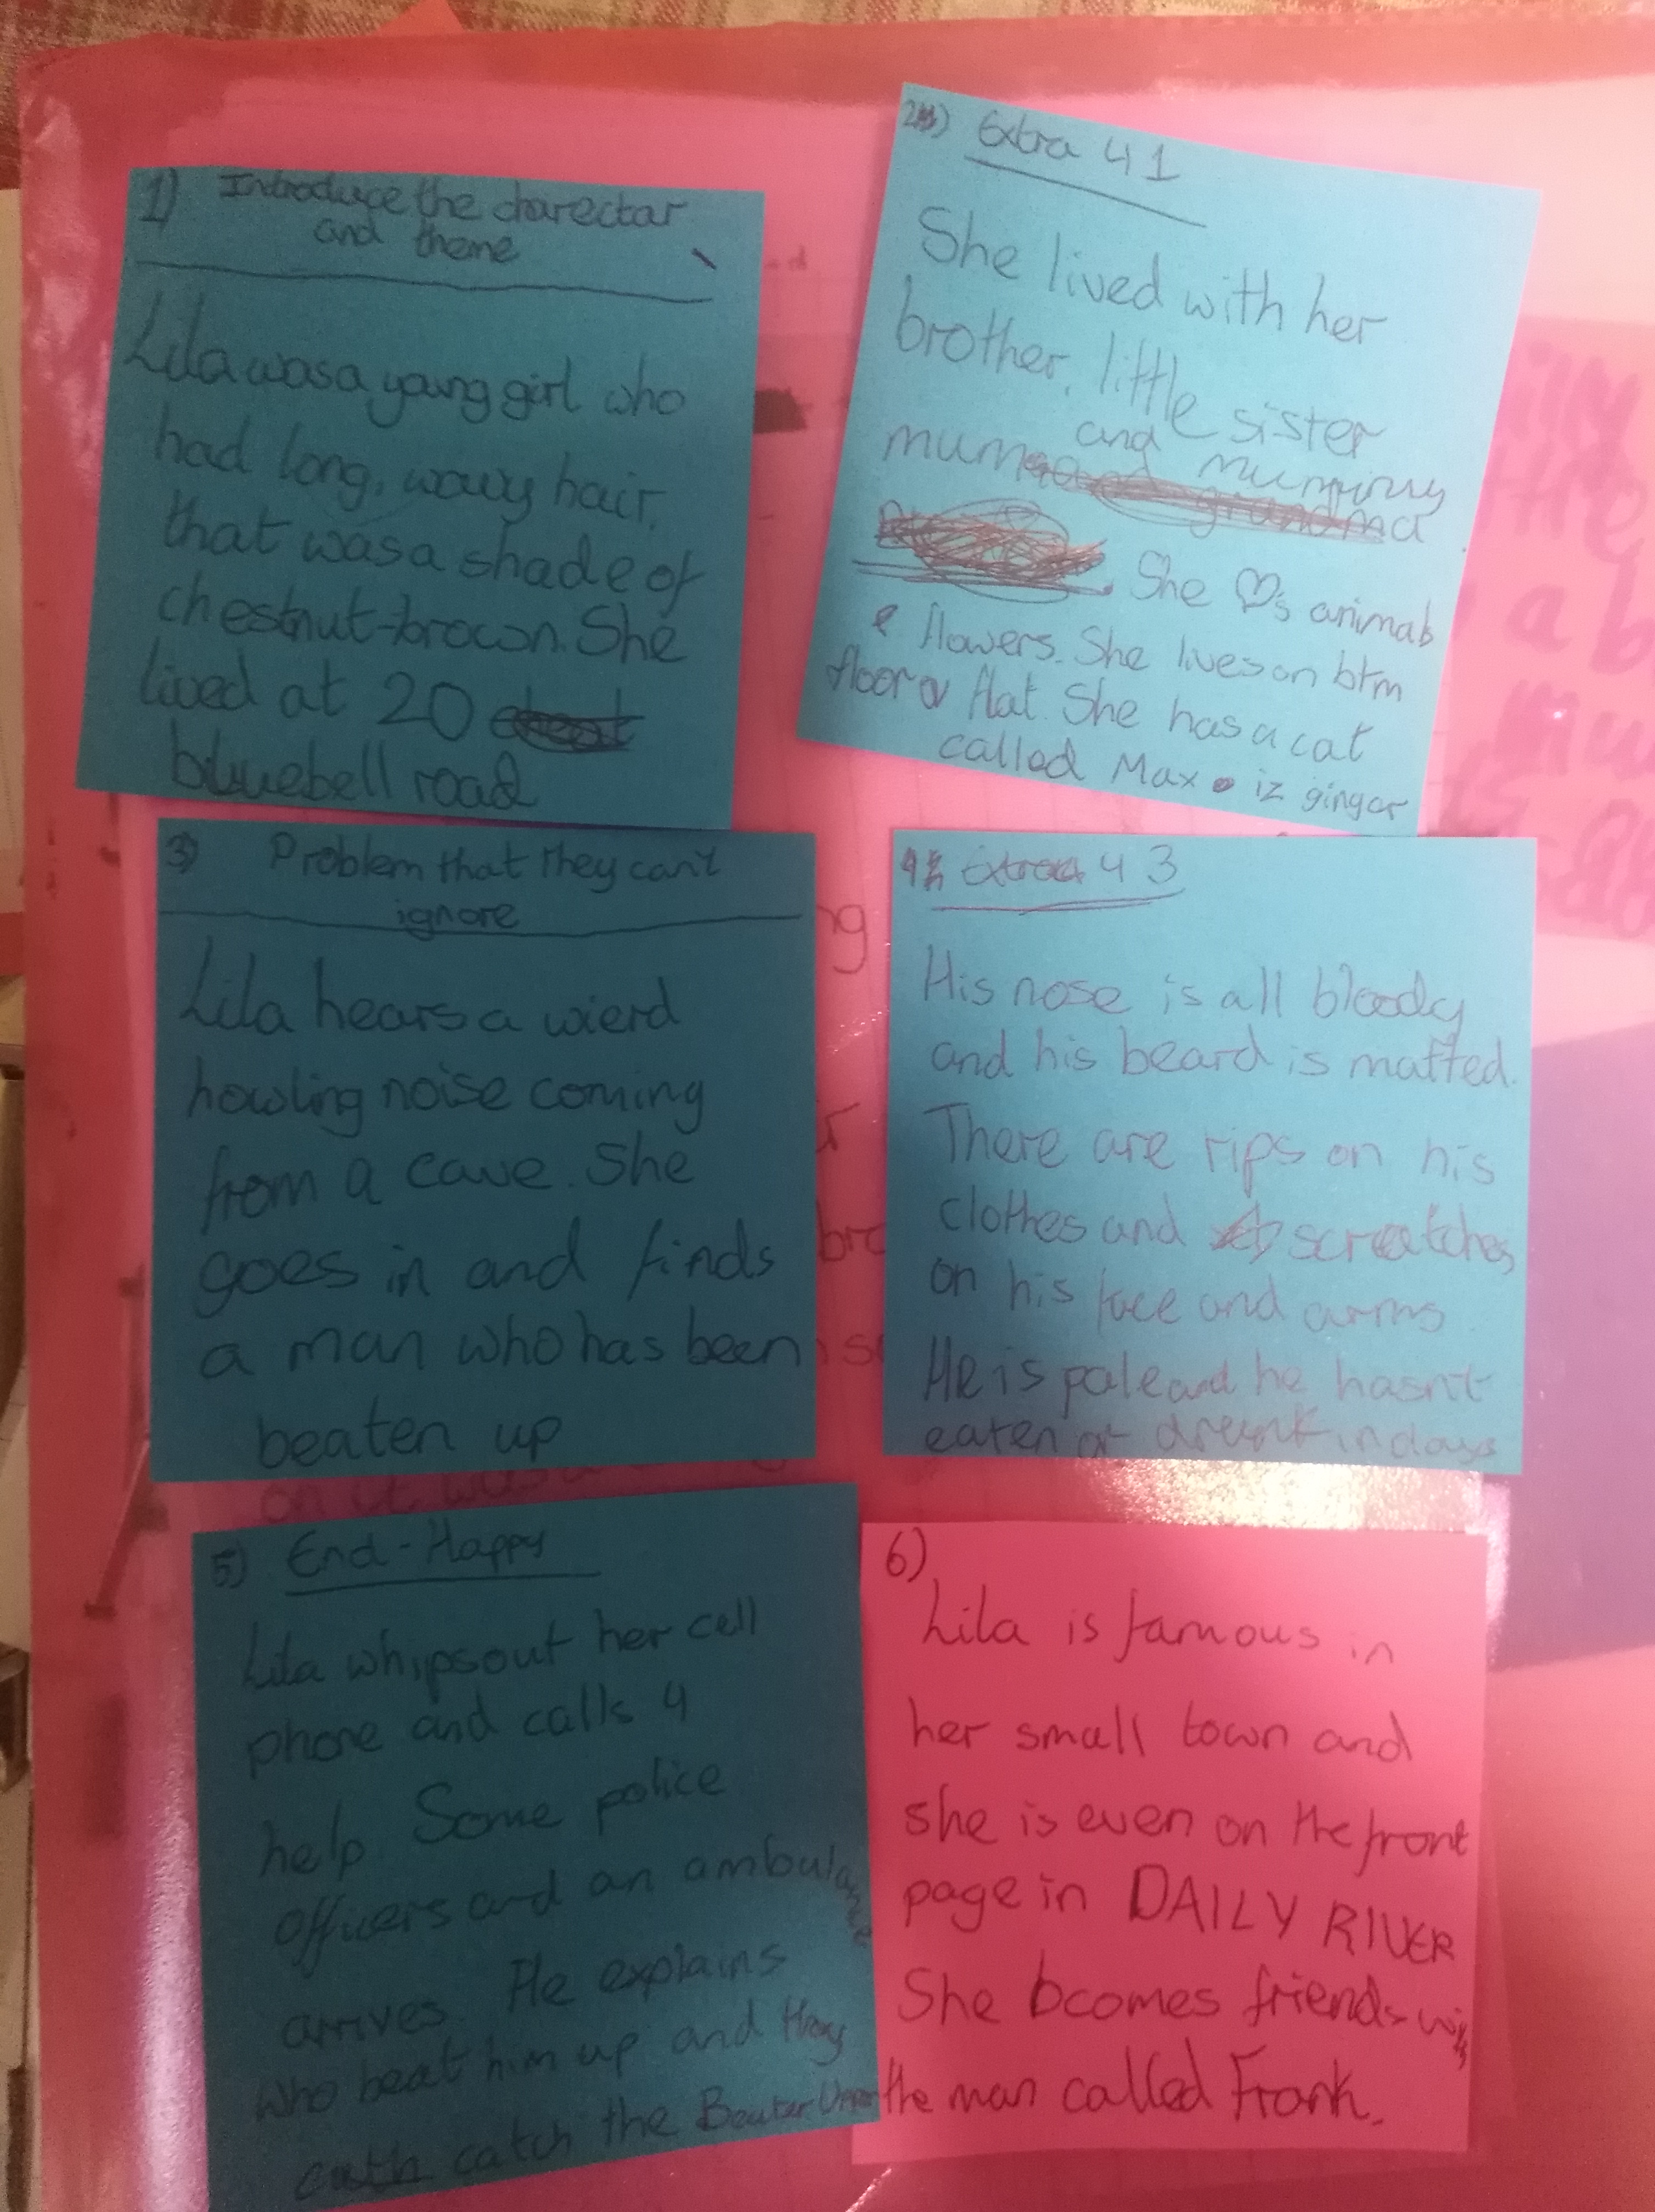 1) Introduce the charectar
and theme
Lila was a young girl who
had long, wavy hair,
that was a shade of
chestnut-brown. She
lived at 20
bluebell road
2) Extra 4 1
She lived with her
brother, little sister
and
mum mummy
grandma
She ♡s animals
& flowers. She lives on btm
floor of flat. She has a cat
called Max iz ginger
3) Problem that they can't
ignore
Lila hears a wierd
howling noise coming
from a cave. She
goes in and finds
a man who has been
beaten up
4) Extra 4 3
His nose is all bloody
and his beard is matted.
There are rips on his
clothes and scratches
on his face and arms.
He is pale and he hasn't
eaten or drunk in days
5) End-Happy
Lila whips out her cell
phone and calls 4
help Some police
officers and an ambulance
arrives. He explains
who beat him up and they
catch the Beater Upper
6)
Lila is famous in
her small town and
she is even on the front
page in DAILY RIVER
She bcomes friends with
the man called Frank.